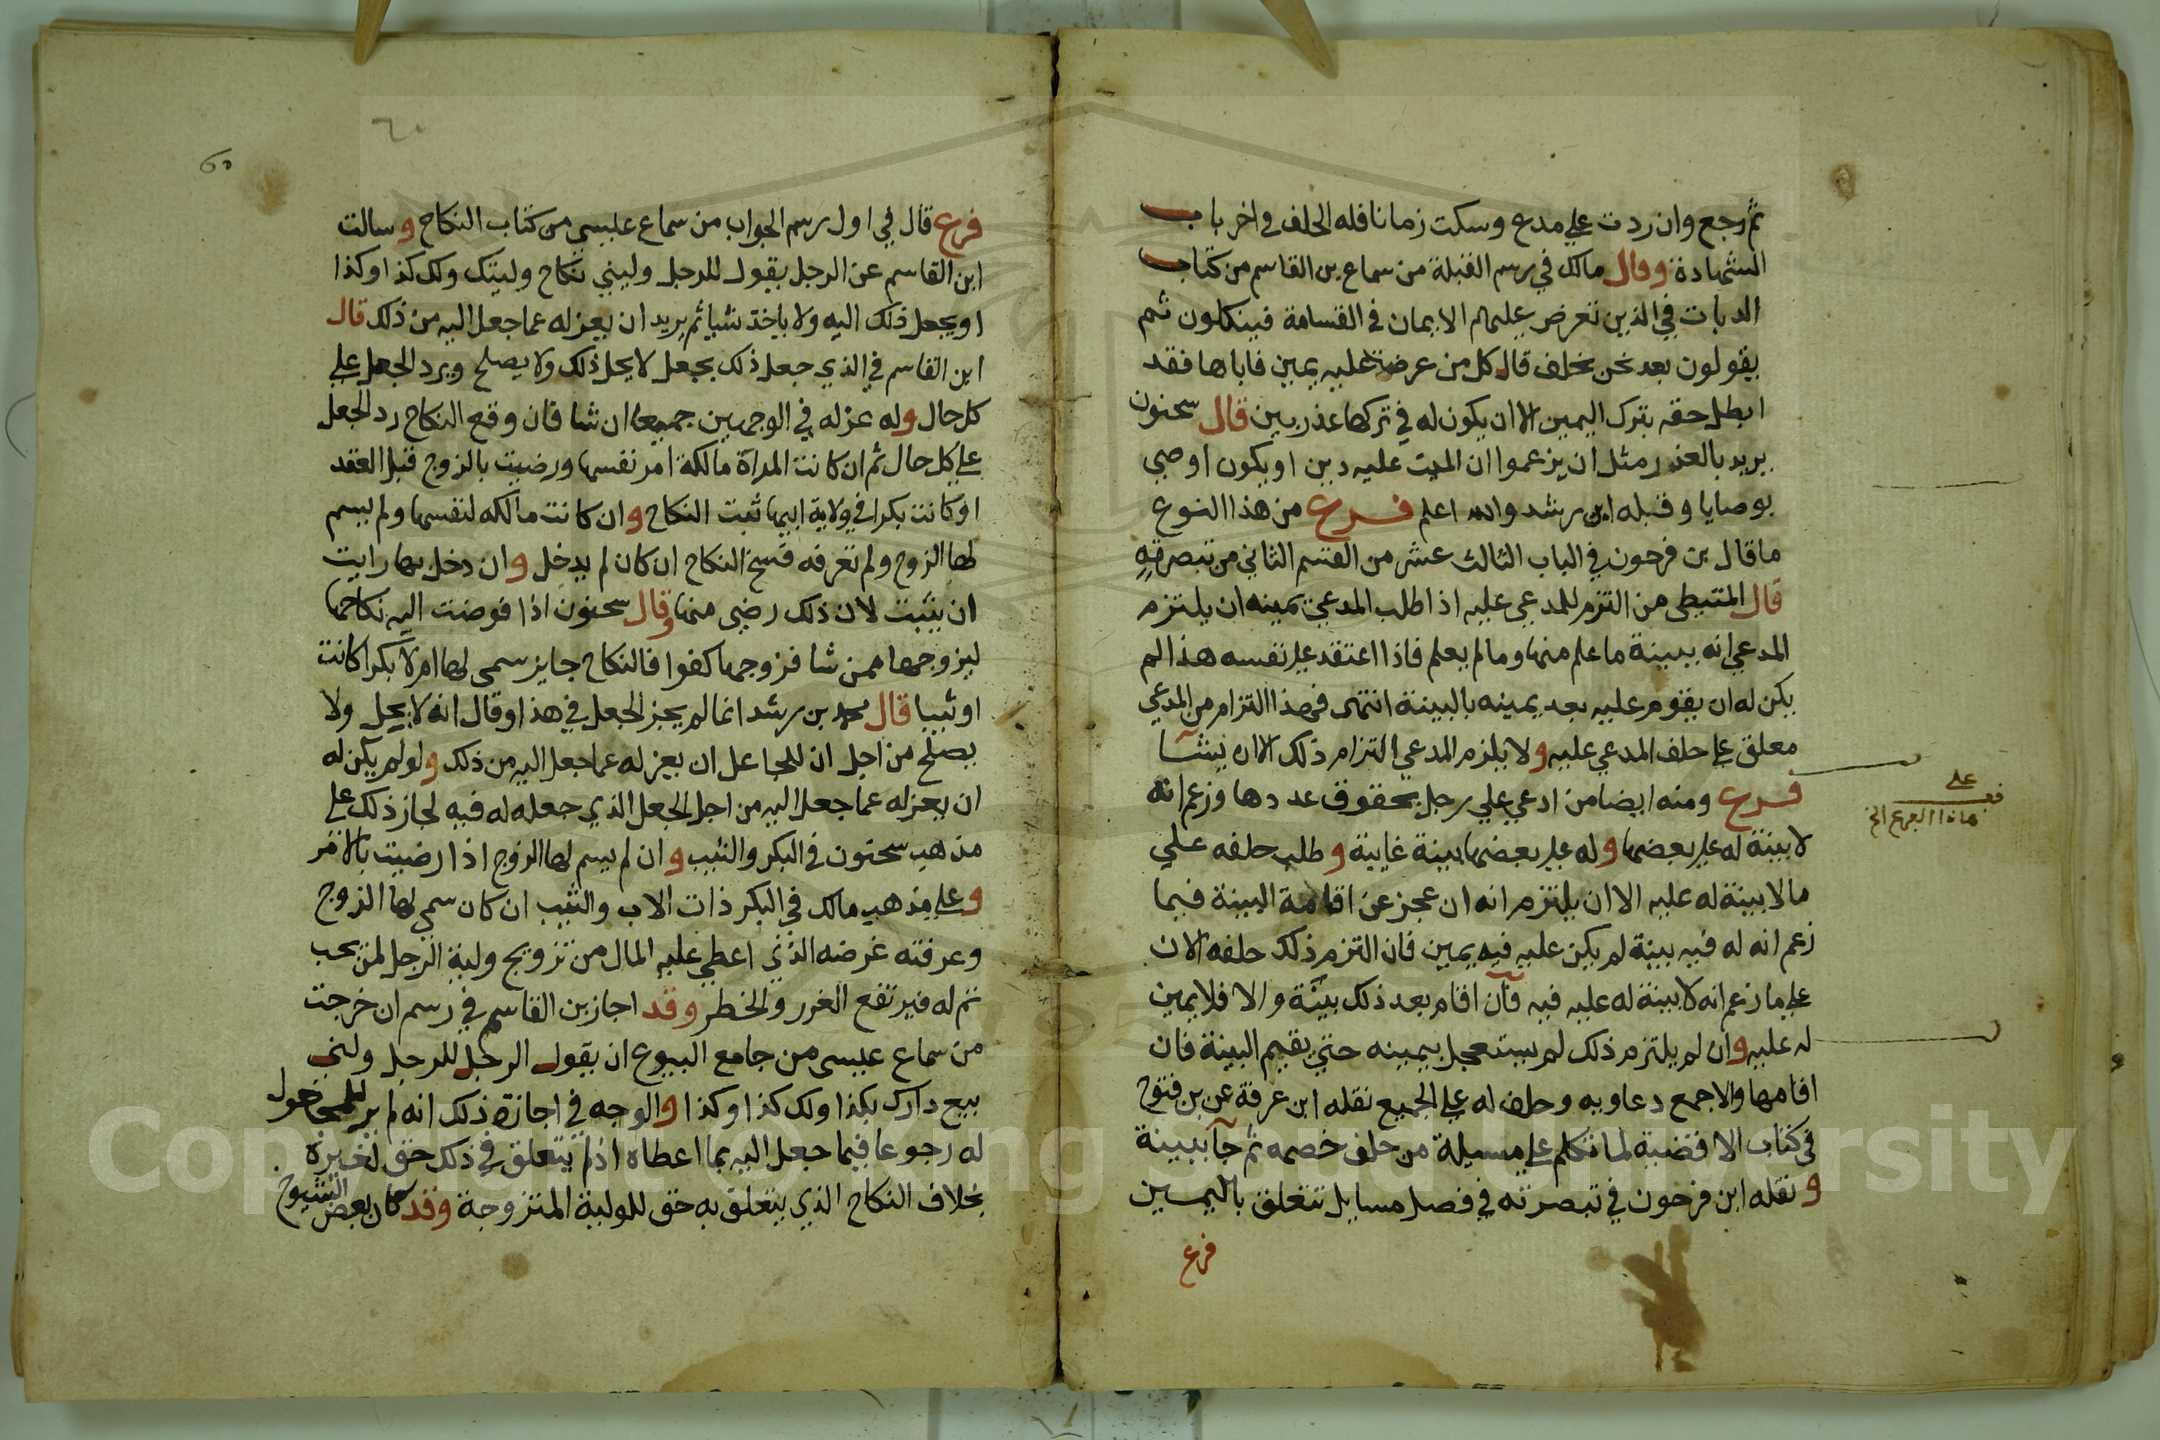 ثم رجع وان ردت علي مدع وسكت زمانا فله الحلف في اخر باب
الشهادة وقال مالك في رسم القبلة من سماع بن القاسم من كتاب
الديات في الذين تعرض عليهم الايمان في القسامة فينكلون ثم
يقولون بعد نحن نحلف قال كل من عرضت عليه يمين فاباها فقد
ابطل حقه بترك اليمين الا ان يكون له في تركها عذر بين قال سحنون
يريد بالعذر مثل ان يزعموا ان الميت عليه دين او يكون اوصي
بوصايا وقبله ابن رشد والله اعلم فرع من هذا النوع
ما قال بن فرحون في الباب الثالث عشر من القسم الثاني من تبصرته
قال المتيطي من التزم للمدعي عليه اذا طلب المدعي يمينه ان يلتزم
المدعي انه ببينة ما علم منها وما لم يعلم فاذا اعتقد علي نفسه هذا لم
يكن له ان يقوم عليه بعد يمينه بالبينة انتهى فهذا التزام من المدعي
معلق علي حلف المدعي عليه ولا يلزم المدعي التزام ذلك الا ان يشآ
فرع ومنه ايضا من ادعي علي رجل بحقوق عددها وزعم انه
لا بينة له علي بعضها وله علي بعضها بينة غايبة وطلب حلفه علي
ما لا بينة له عليه الا ان يلتزم انه ان عجز عن اقامة البينة فيما
زعم انه له فيه بينة لم يكن عليه فيه يمين فان التزم ذلك حلفه الان
علي ما زعم انه لا بينة له عليه فيه فآن اقام بعد ذلك بينة والا فلا يمين
له عليه وان لم يلتزم ذلك لم يستعجل بيمينه حتي يقيم البينة فان
اقامها والا جمع دعاويه وحلف له علي الجميع نقله ابن عرفة عن بن فتوح
في كتاب الاقضية لما تكلم علي مسيلة من حلف خصمه ثم جآ ببينة
ونقله ابن فرحون في تبصرته في فصل مسايل تتعلق باليمين
فرع
علي
هاذا الفرع الخ
فرع قال في اول رسم الجواب من سماع عيسي من كتاب النكاح وسالت
ابن القاسم عن الرجل يقول للرجل وليني نكاح وليتك ولك كذا وكذا
او يجعل ذلك اليه ولا ياخذ شيا ثم يريد ان يعزله عما جعل اليه من ذلك قال
ابن القاسم في الذي جعل ذلك بجعل لا يحل ذلك ولا يصلح ويرد الجعل علي
كل حال وله عزله في الوجهين جميعا ان شا فان وقع النكاح رد الجعل
علي كل حال ثم ان كانت المراة مالكة امر نفسها ورضيت بالزوج قبل العقد
او كانت بكرا في ولاية ابيها ثبت النكاح وان كانت مالكه لنفسها ولم يسم
لها الزوج ولم تعرفه فسخ النكاح ان كان لم يدخل وان دخل بها رايت
ان يثبت لان ذلك رضي منها وقال سحنون اذا فوضت اليه نكاحها
ليزوجها ممن شا فزوجها كفوا فالنكاح جايز سمى لها ام لا بكرا كانت
او ثيبا قال محمد بن رشد انما لم يجز الجعل في هذا وقال انه لا يحل ولا
يصلح من اجل ان للجاعل ان يعزله عما جعل اليه من ذلك ولو لم يكن له
ان يعزله عما جعل اليه من اجل الجعل الذي جعله له فيه لجاز ذلك علي
مذهب سحنون في البكر والثيب وان لم يسم لها الزوج اذا رضيت بالامر
وعلي مذهب مالك في البكر ذات الاب والثيب ان كان سمي لها الزوج
وعرفته غرضه الذي اعطي عليه المال من تزويج ولية الرجل لمن يحب
تم له فيرتفع الغرر والخطر وقد اجاز بن القاسم في رسم ان خرجت
من سماع عيسى من جامع البيوع ان يقول الرجل للرجل ولني
بيع دارك بكذا ولك كذا وكذا والوجه في اجازة ذلك انه لم ير للمجعول
له رجوعا فيما جعل اليه بما اعطاه اذ لم يتعلق في ذلك حق لغيره
بخلاف النكاح الذي يتعلق به حق للولية المتزوجة وقد كان بعض الشيوخ
Copyright © King Saud University